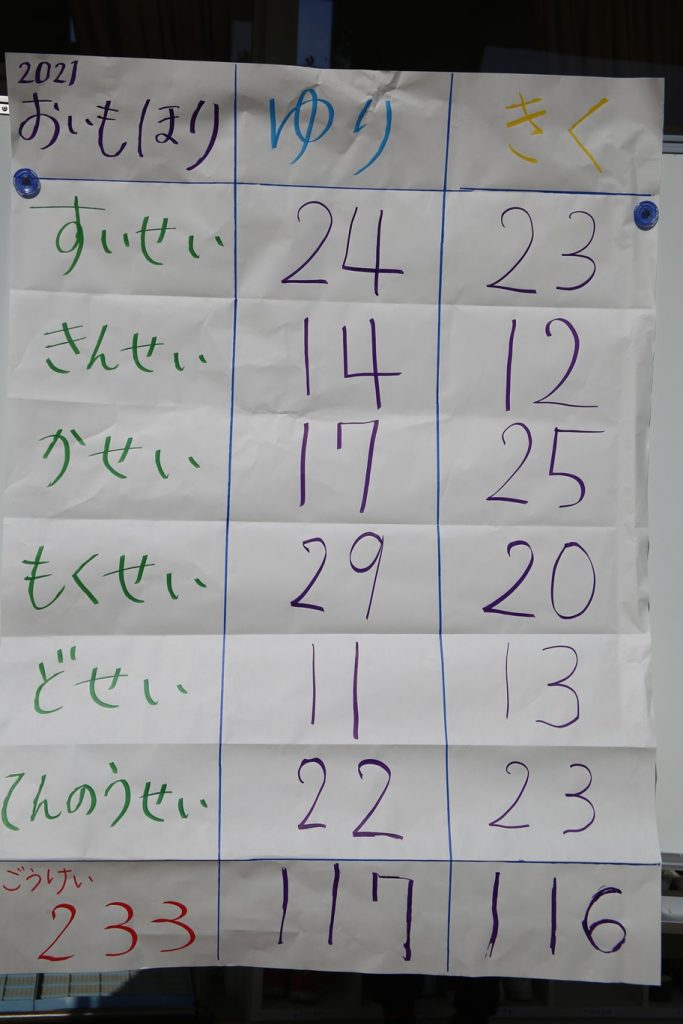 2021
おいもほり ゆり きく
すいせい 24 23
きんせい 14 12
かせい 17 25
もくせい 29 20
どせい 11 13
てんのうせい 22 23
ごうけい
233 117 116